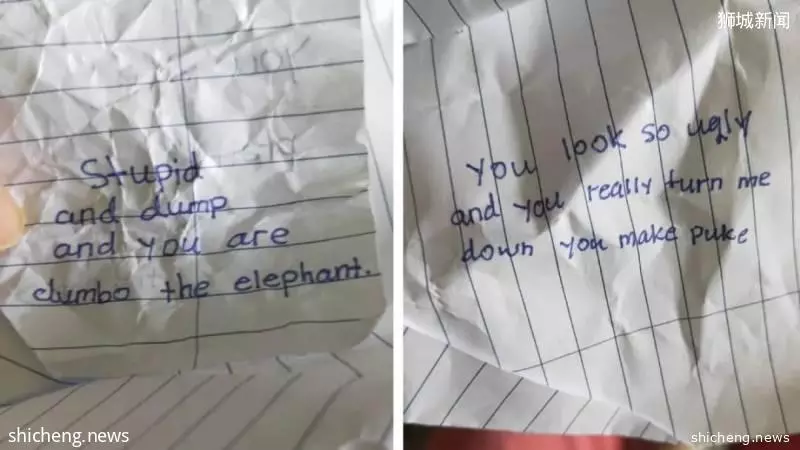 Stupid
and dump
and you are
dumbo the elephant.
狮城新闻
you look so ugly
and you really turn me
down you make puke
shicheng.news
shicheng.news